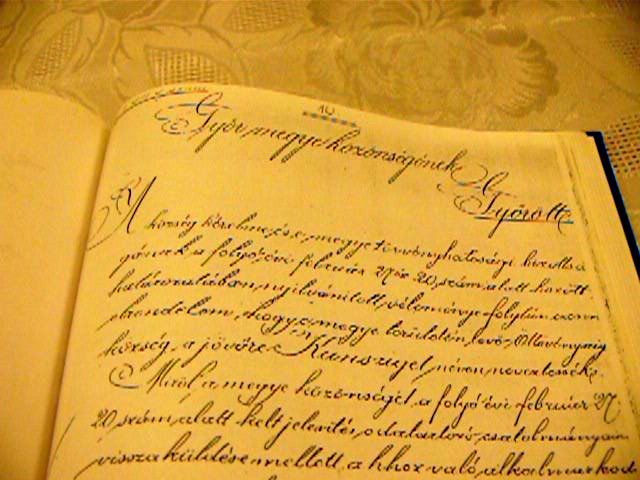 10
Győr megye közönségének
Győrött
A község kérelme, és e megye törvényhatósági bizottsá
gának a folyó évi február 27 én 20. szám alatt hozott
határozatában nyilvánított véleménye folytán ezenn
elrendelem, hogy e megye területén levő Öttevényszig
község a jövőre Kunsziget néven neveztessék.
Miről a megye közönségét a folyó évi február 27
20. szám alatt kelt jelentés, odatartozó csatolmányain
visszaküldése mellett, a hhoz való alkalmazkod